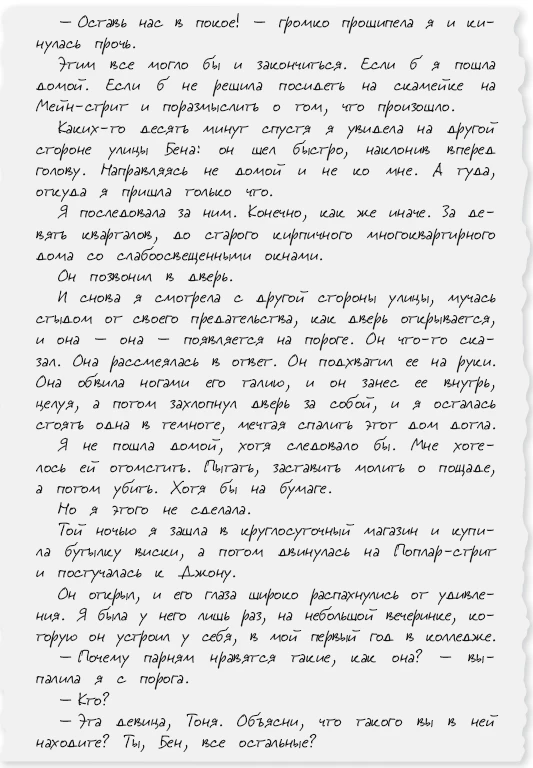 — Оставь нас в покое! — громко прошипела я и ки-
нулась прочь.
Этим все могло бы и закончиться. Если б я пошла
домой. Если б не решила посидеть на скамейке на
Мейн-стрит и поразмыслить о том, что произошло.
Каких-то десять минут спустя я увидела на другой
стороне улицы Бена: он шел быстро, наклонив вперед
голову. Направляясь не домой и не ко мне. А туда,
откуда я пришла только что.
Я последовала за ним. Конечно, как же иначе. За де-
вять кварталов, до старого кирпичного многоквартирного
дома со слабоосвещенными окнами.
Он позвонил в дверь.
И снова я смотрела с другой стороны улицы, мучась
стыдом от своего предательства, как дверь открывается,
и она — она — появляется на пороге. Он что-то ска-
зал. Она рассмеялась в ответ. Он подхватил ее на руки.
Она обвила ногами его талию, и он занес ее внутрь,
целуя, а потом захлопнул дверь за собой, и я осталась
стоять одна в темноте, мечтая спалить этот дом дотла.
Я не пошла домой, хотя следовало бы. Мне хоте-
лось ей отомстить. Пытать, заставить молить о пощаде,
а потом убить. Хотя бы на бумаге.
Но я этого не сделала.
Той ночью я зашла в круглосуточный магазин и купи-
ла бутылку виски, а потом двинулась на Поплар-стрит
и постучалась к Джону.
Он открыл, и его глаза широко распахнулись от удивле-
ния. Я была у него лишь раз, на небольшой вечеринке, ко-
торую он устроил у себя, в мой первый год в колледже.
— Почему парням нравятся такие, как она? — вы-
палила я с порога.
— Кто?
— Эта девица, Тоня. Объясни, что такого вы в ней
находите? Ты, Бен, все остальные?